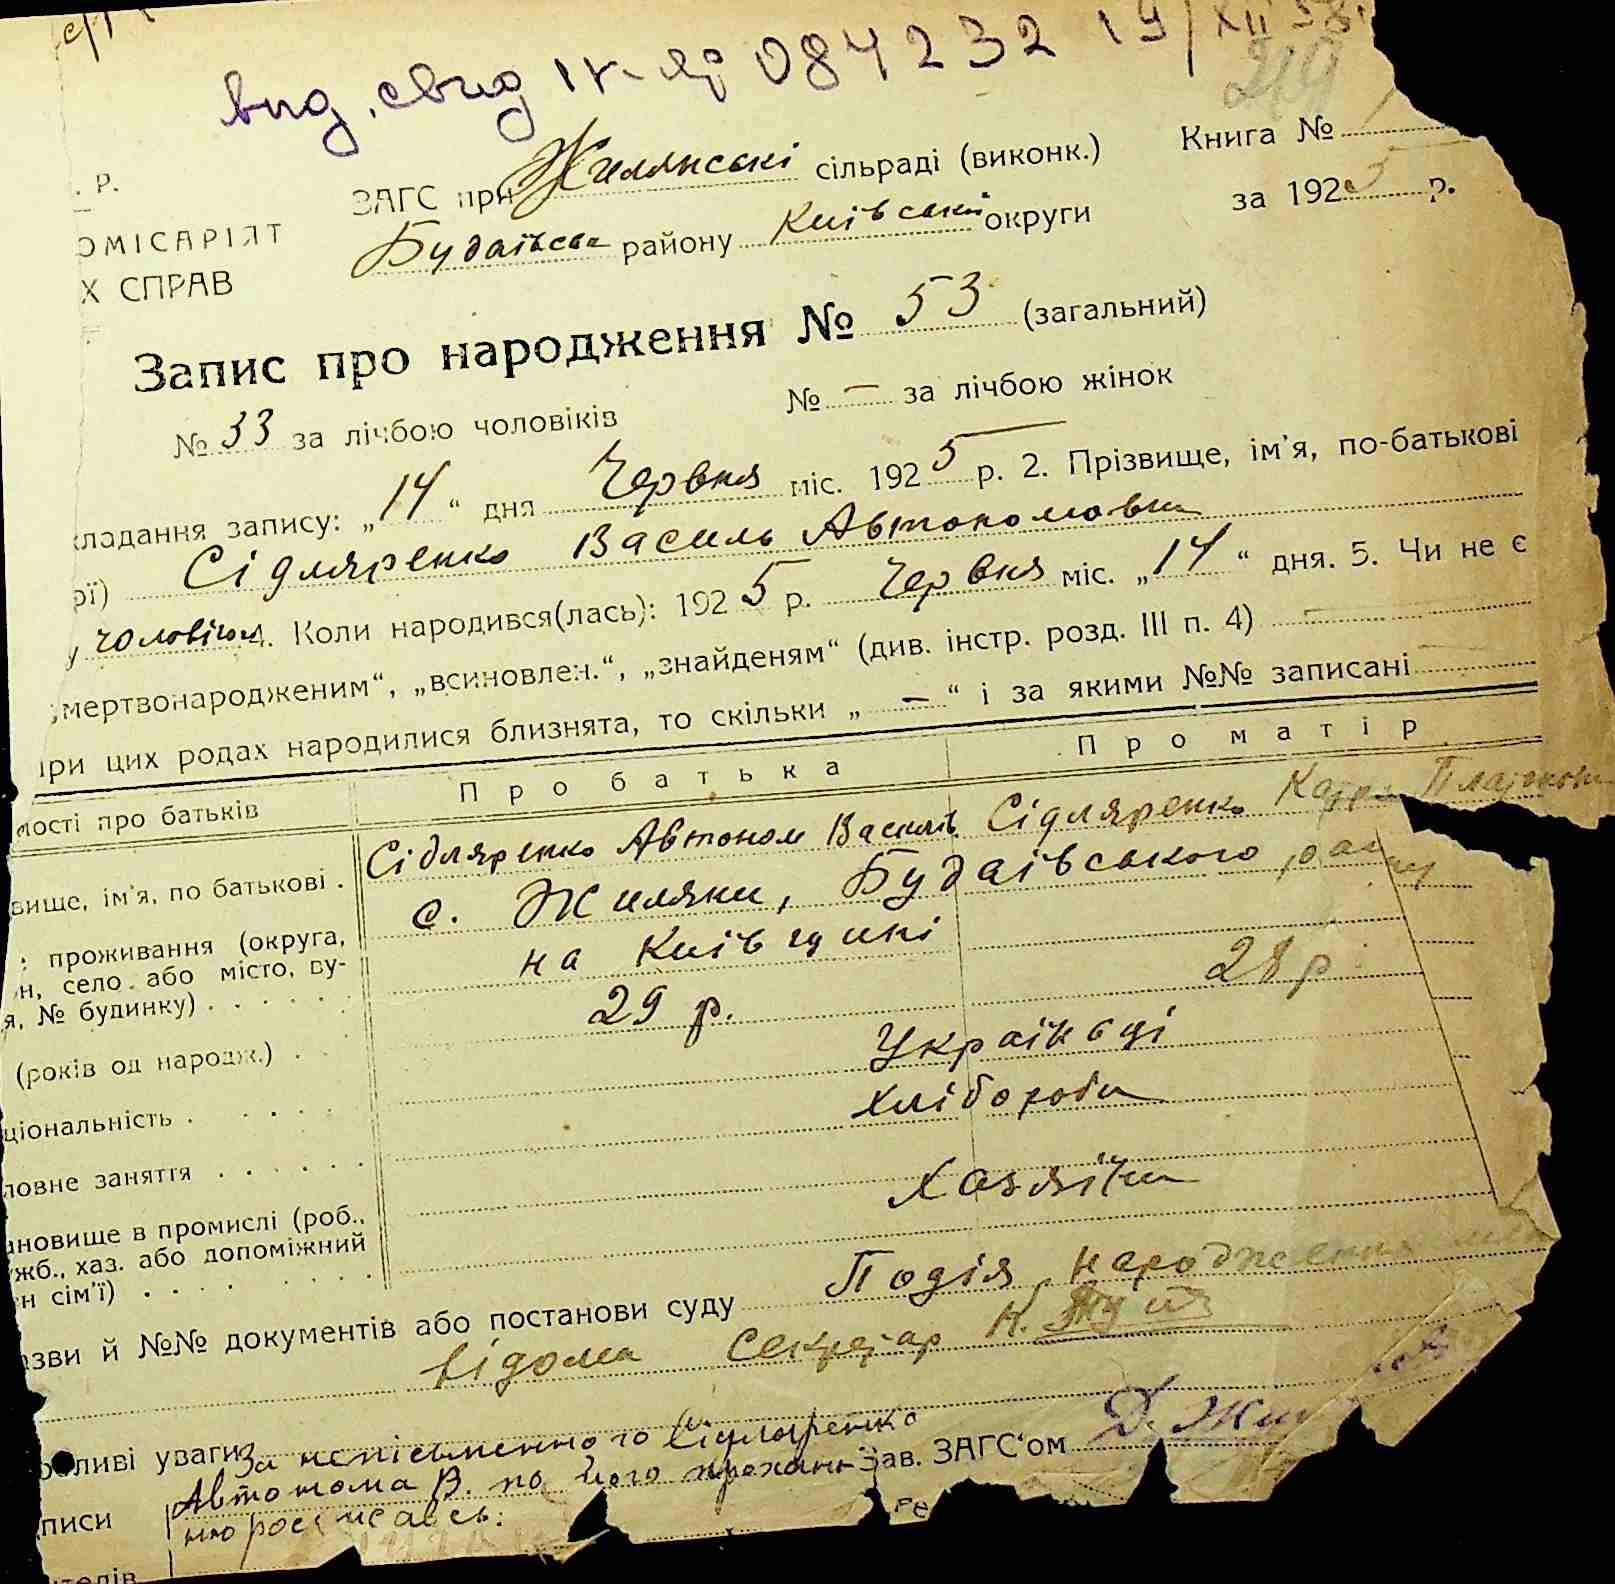 вид. свид ІҮ-яр 084232 19/ХІІ 58.
219
. Р.
ЗАГС при Жилянські сільраді (виконк.)
Книга №
ОМІСАРІЯТ
Будаївськ району Київської округи
за 1925 р.
Х СПРАВ
Запис про народження № 53 (загальний)
№ 33 за лічбою чоловіків № — за лічбою жінок
кладання запису: „14“ дня Червня міс. 1925 р. 2. Прізвище, ім'я, по-батькові
рії) Сідляренко Василь Автономович
у чоловіч. 4. Коли народився(лась): 1925 р. Червня міс. „14“ дня. 5. Чи не є
„мертвонародженим“, „всиновлен.“, „знайденям“ (див. інстр. розд. III п. 4)
при цих родах народилися близнята, то скільки „—“ і за якими №№ записані
мості про батьків Про батька Про матір
вище, ім'я, по батькові . Сідляренко Автоном Василів Сідляренко
: проживання (округа, с. Жиляни, Будаївського району
он, село або місто, ву- на Київщині
я, № будинку) . . . . . .
(років од народж.) . . 29 р. 28 р.
ціональність . . . . . Українці
ловне заняття . . . . . . Хлібороби
ановище в промислі (роб., Хазяїни
ужб., хаз. або допоміжний
ен сім'ї) . . . . . . .
азви й №№ документів або постанови суду Подія народження
відома Секретар Н.
бливі уваги За неписьменного Сідляренко
Автонома В. по його прохан-
Зав. ЗАГС'ом Д. Жи
писи ню росписавсь.
ителів